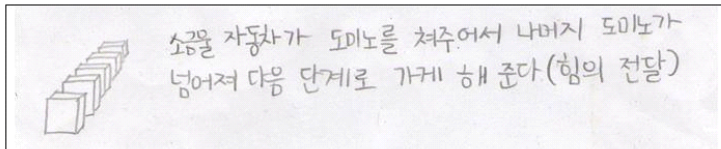 소금물 자동차가 도미노를 쳐주어서 나머지 도미노가
넘어져 다음 단계로 가게 해 준다(힘의 전달)